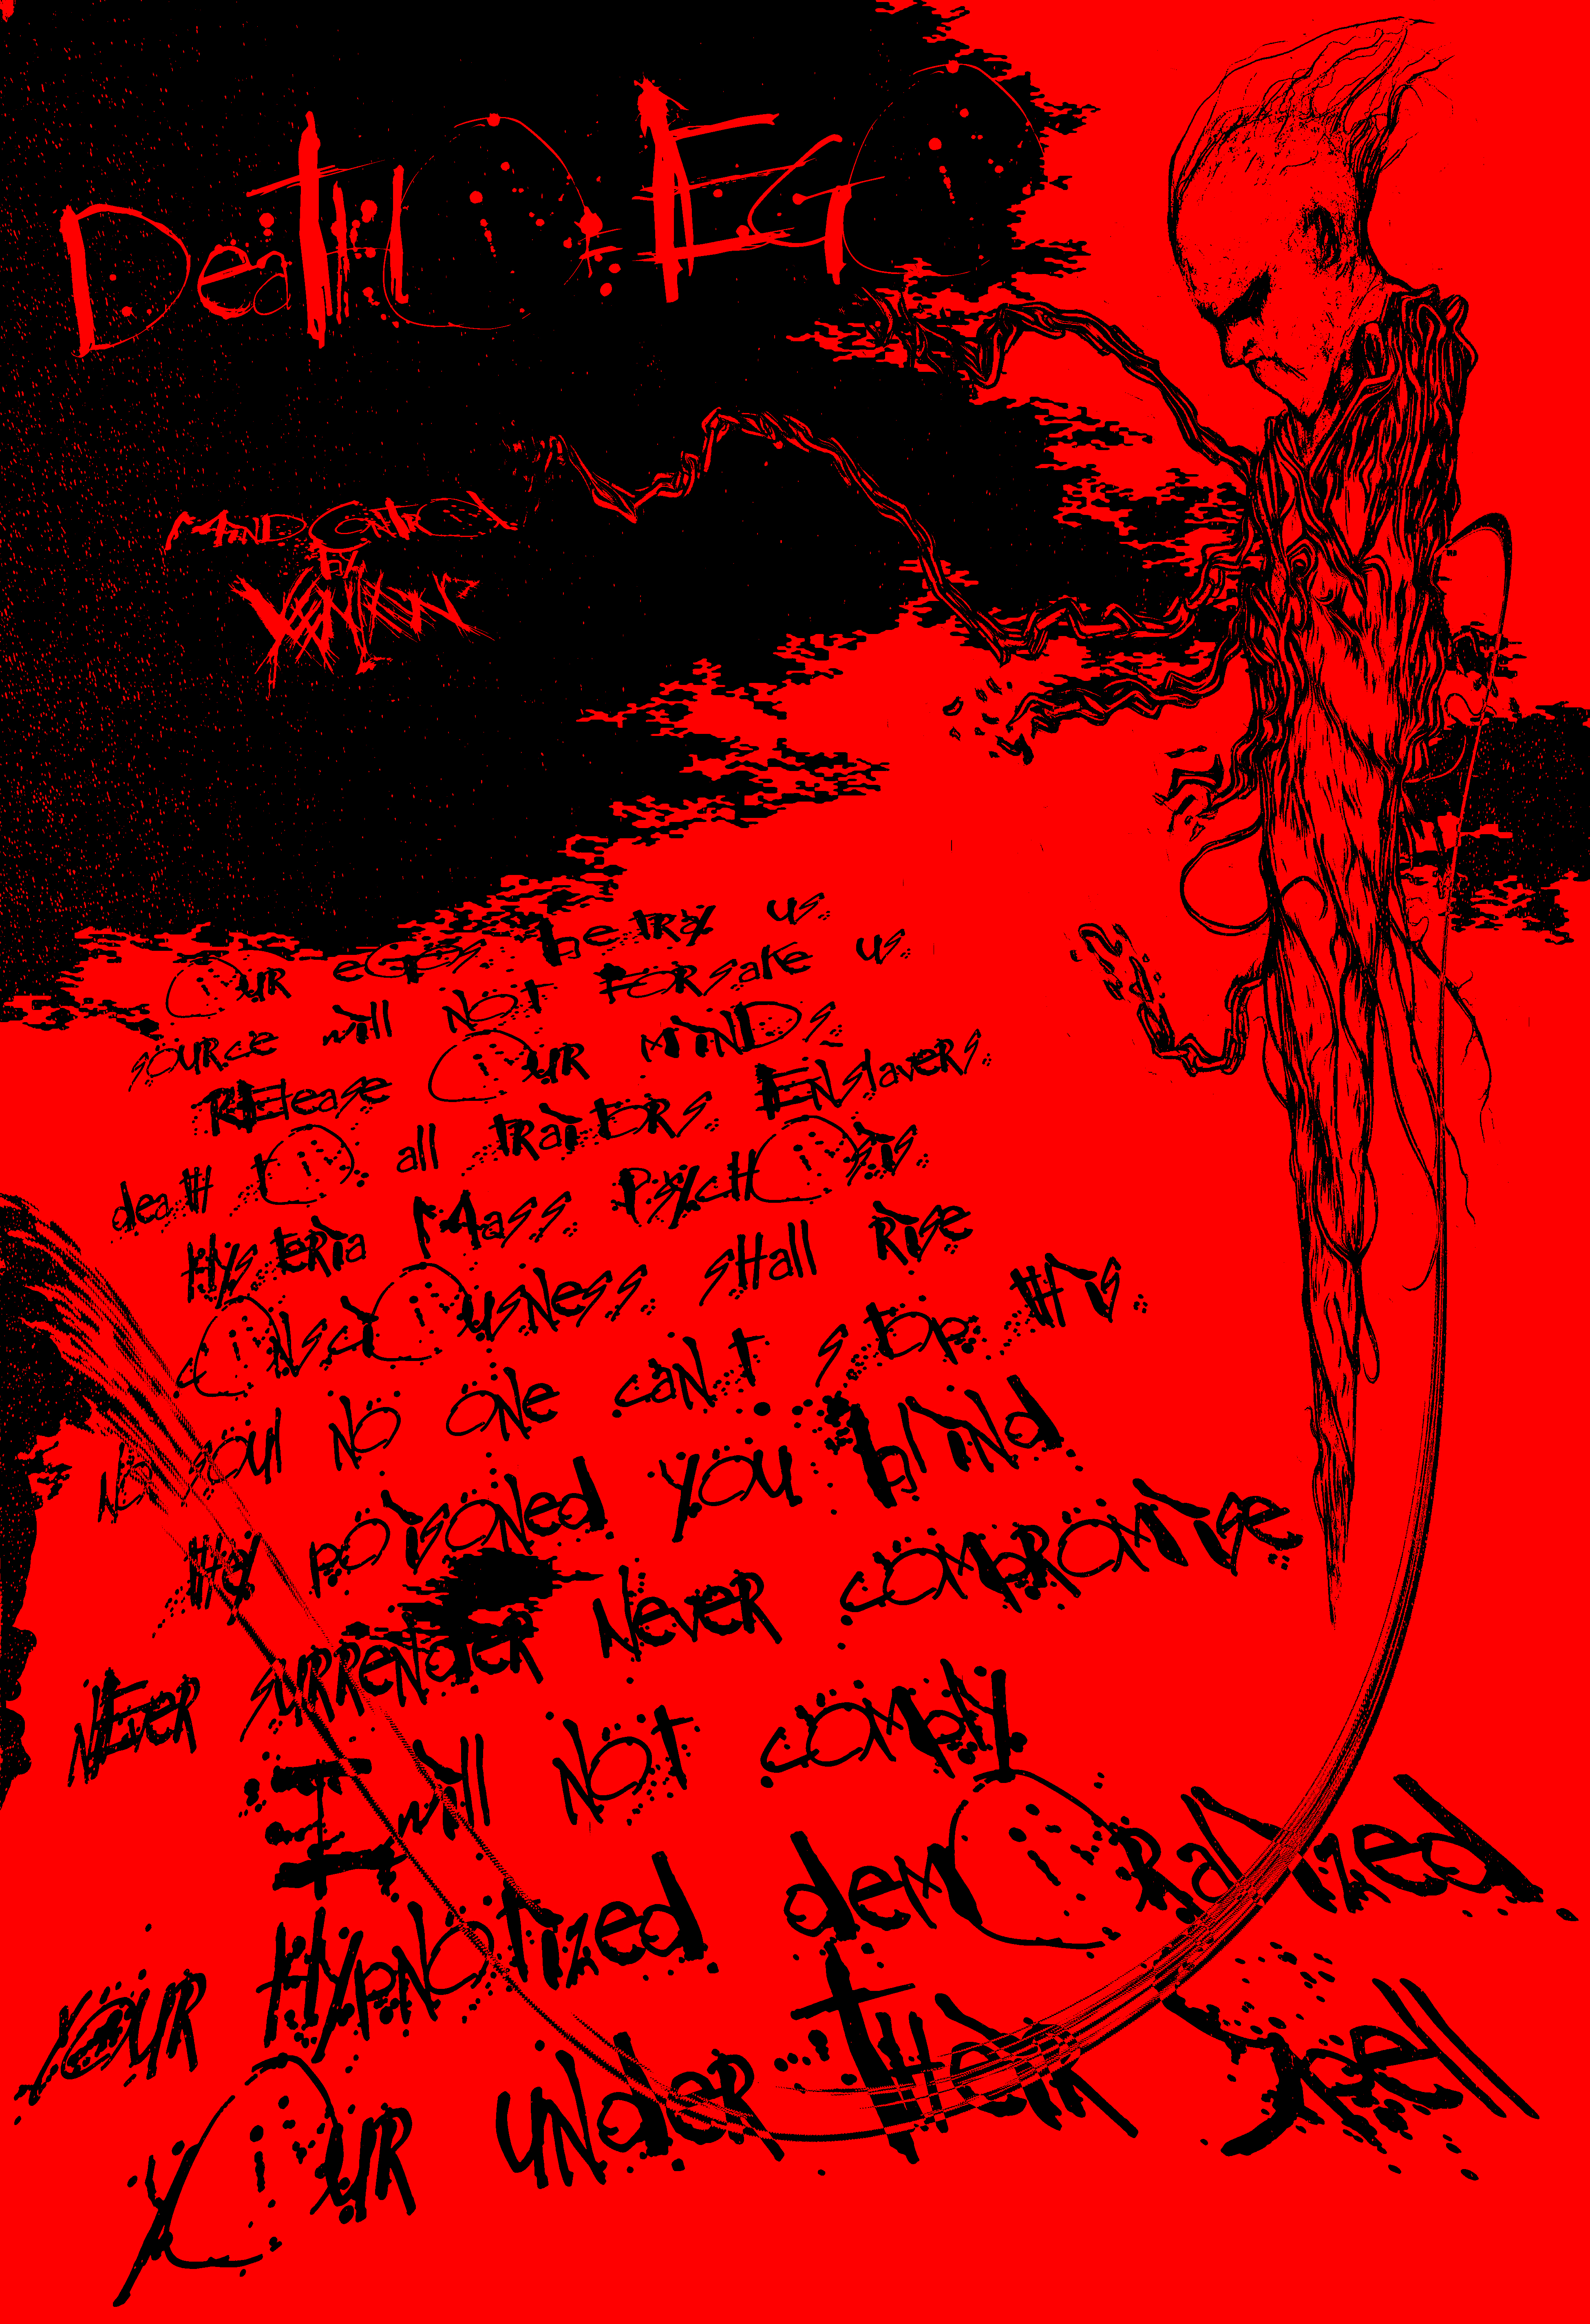 Death O EGO
MiND CONTROl
By
OUR eGOs betray us.
source will NOT FORsake us.
RElease OUR MiNDs.
death tO all tRaiTERs ENslavers.
HysTERia Mass PsycHOsis.
cONsciOusNess. sHall Rise
NO soul NO ONe caN.t sTOp. tHis.
tHey pOisONed you bliNd.
NEver surreNdER Never cOMpROMise
I will NOT cOMply
YOUR HypNOTized demORalized
YOUR uNder tHeir spell